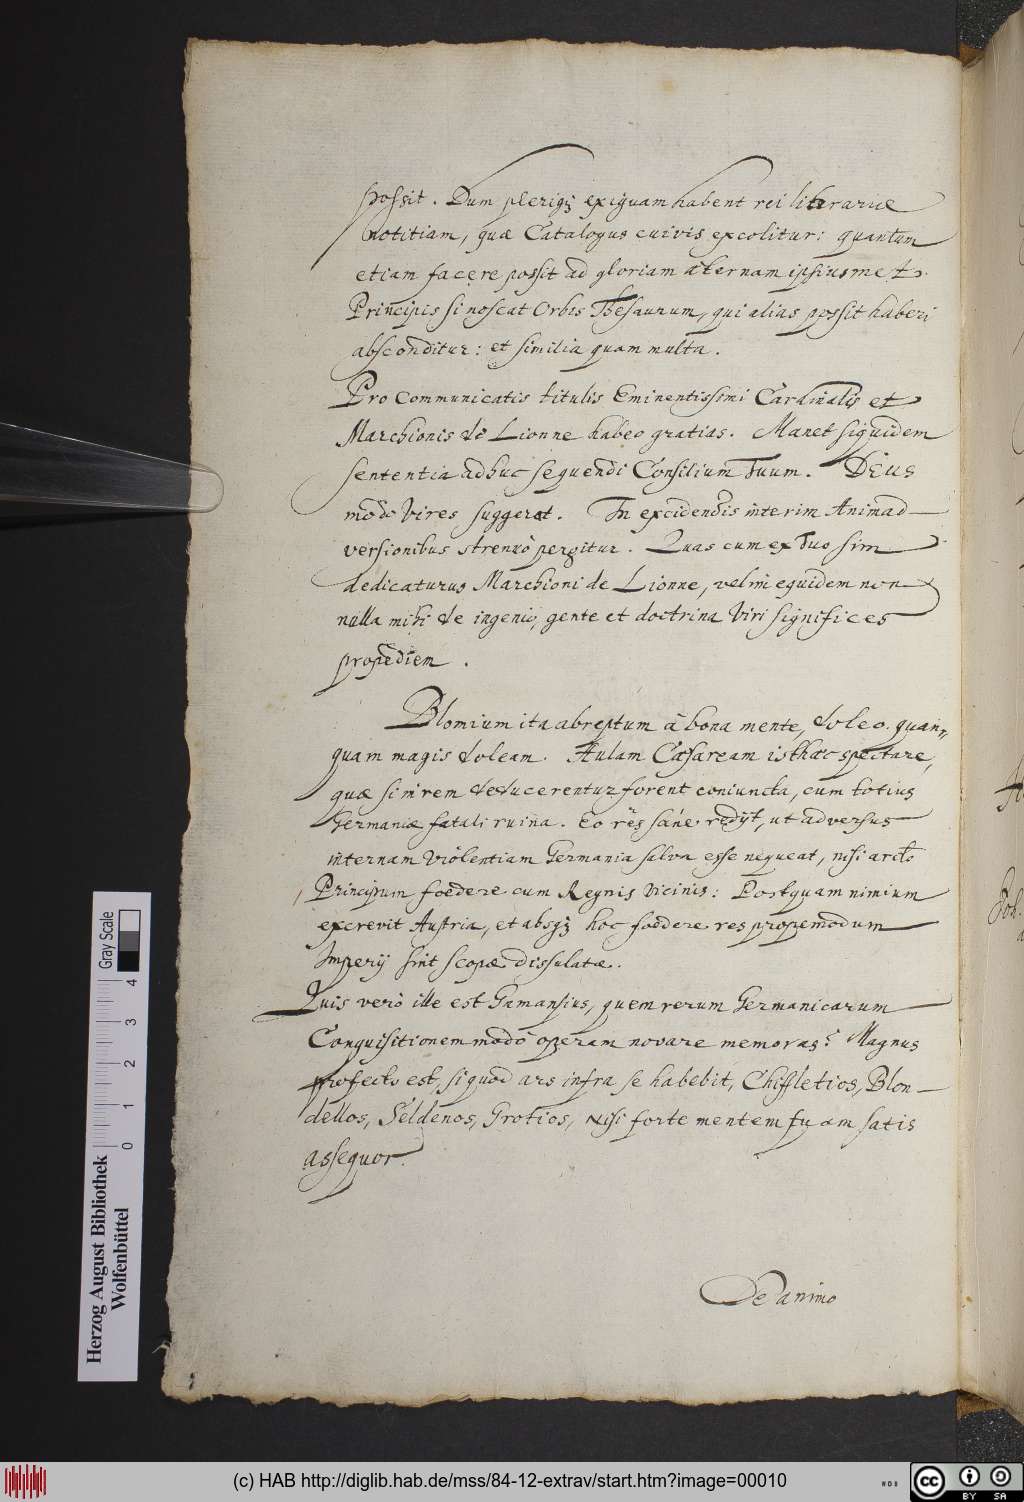 possit. Dum plerigꝫ exiguam habent rei literariæ
notitiam, quæ Catalogus cuivis excolitur: quantum
etiam facere possit ad gloriam æternam ipsiusmet
Principis si noscat Orbis Thesaurum, qui alias possit haberi
absconditur: et similia quam multa.
Pro communicatis titulis Eminentissimi Cardinalis et
Marchionis de Lionne habeo gratias. Manet siquidem
sententia adhuc sequendi Consilium Tuum. Deus
modo vires suggerat. In excidendis interim Animad-
versionibus strenuò pergitur. Quas cum ex Tuo sim
dedicaturus Marchioni de Lionne, velim equidem non-
nulla mihi de ingenio, gente et doctrina Viri significes
propediem.
Blomium ita abreptum à bona mente, doleo. quan-
quam magis doleam. Aulam Cæsaream isthæc spectare,
quæ si in rem deducerentur forent coniuncta, cum totius
Germaniæ fatali ruina. Eo res sane redijt, ut adversus
internam violentiam Germania salva esse nequeat, nisi arcto
Principum foedere cum Regnis vicinis: Postquam nimium
excrevit Austria, et absqꝫ hoc foedere res propemodum
Imperij sint scopæ dissulatæ.
Quis verò ille est Gamansius, quem rerum Germanicarum
Conquisitionem modò operam novare memoras? Magnus
profecto est, si quod ars infra se habebit, Chiffletios, Blon-
dellos, Seldenos, Grotios, nisi forte mentem tuam satis
assequor.
De animo
Herzog August Bibliothek
Wolfenbüttel
Gray Scale
0 1 2 3 4
(c) HAB http://diglib.hab.de/mss/84-12-extrav/start.htm?image=00010
cc BY SA